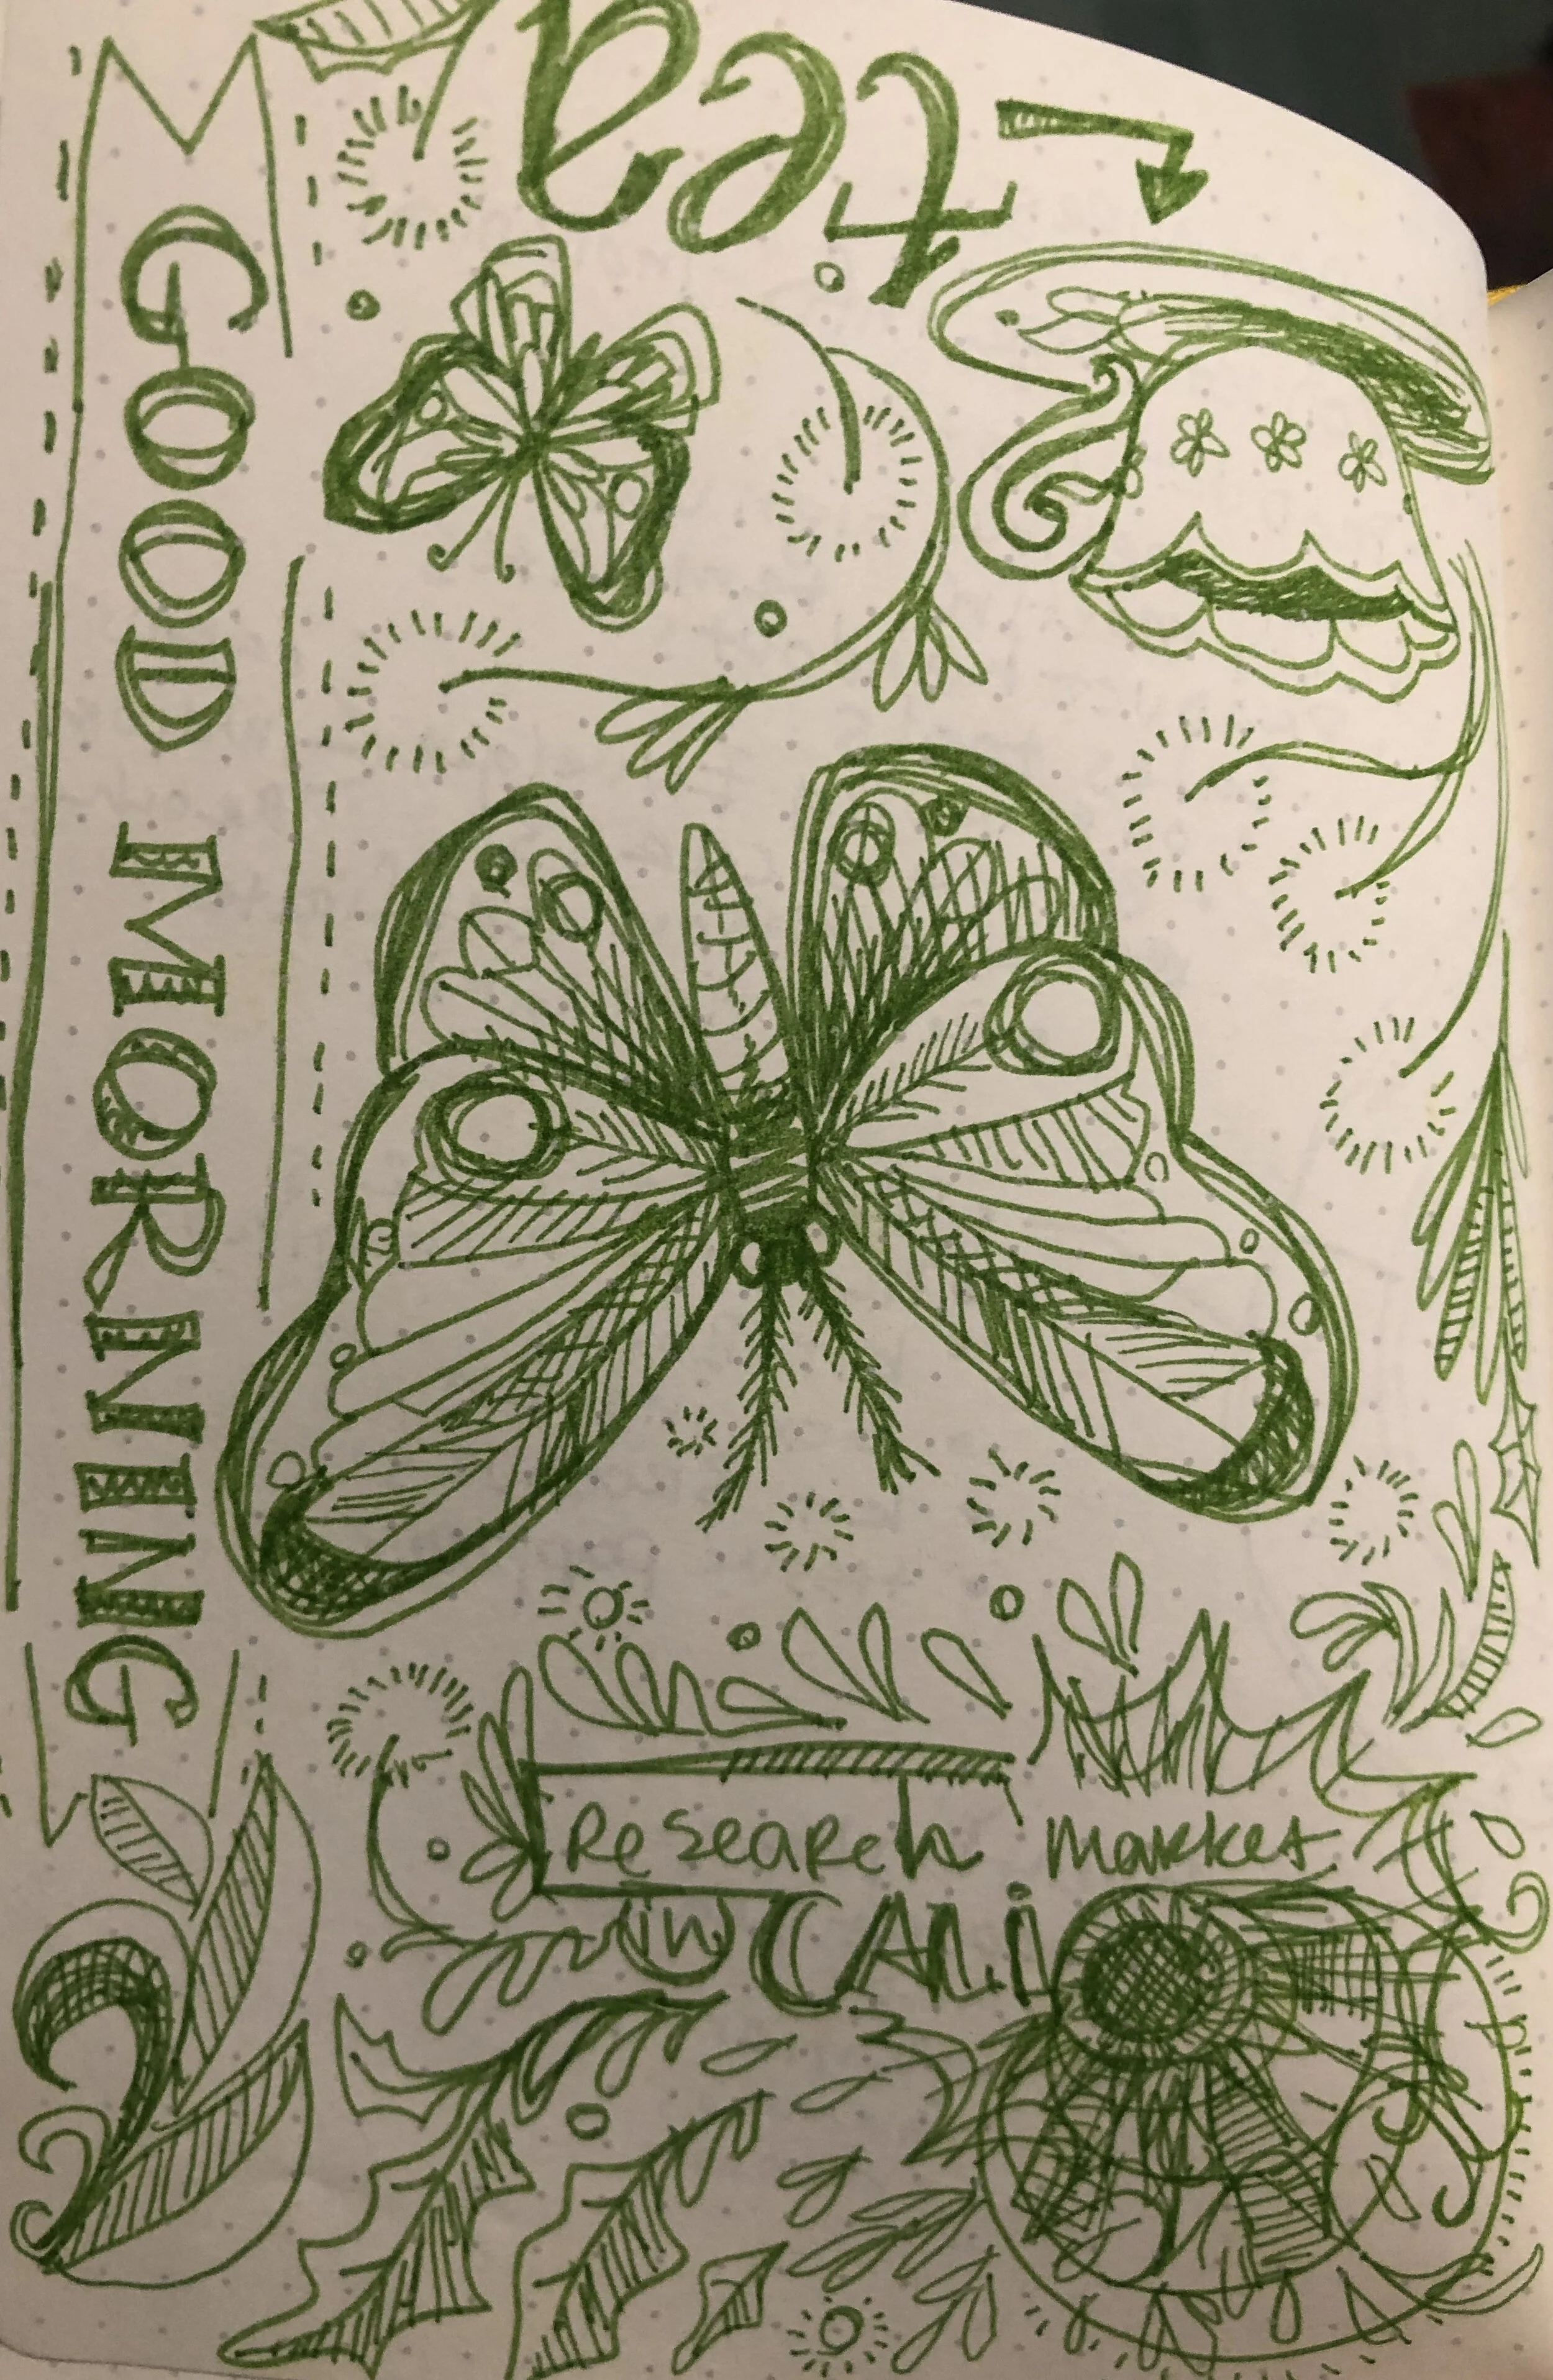 tea
GOOD MORNING
Research market
in CALI